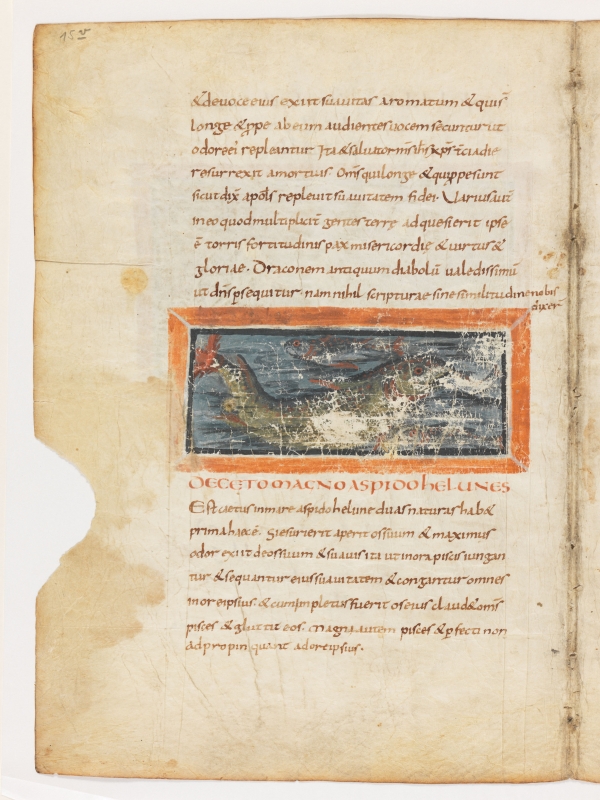 15v
& de voce eius exiit suauitas aromatum & qui s̄
longe & ꝓpe ab eum audientes uocem secuntur ut
odore ei repleantur Ita & saluator nr̄ ihs xp̄s tcia die
resurrexit a mortuis Oms̄ qui longe & qui ꝓpe sunt
sicut dix̄ apols̄ repleuit suauitatem fidei. Varius aut̄
in eo quod multiplicit̄ gentes terrę adquesierit ipse
ē torris fortitudinis pax misericordie & uirtus &
gloriae. Draconem antiquum diabolū ualedissimū
ut dns̄ ꝑsequitur nam nihil scripturae sine similitudine nobis
dixer̄
DE CETO MAGNO ASPIDOHELUNES
Est caetus in mare aspidohelune duas naturas hab&
prima haec ē. si esurierit aperit ossuum & maximus
odor exiit de ossuum & suauis ita ut minora piscis iungan
tur & sequantur eius suauitatem & congantur omnes
in ore ipsius. & cum impletus fuerit os eius claud& oms̄
pisces & gluttit eos. magna autem pisces & ꝑfecti non
adpropinquant ad ore ipsius.